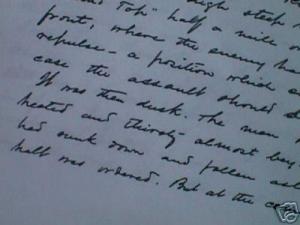 "Round Top" half a mile
front, where the enemy ha
repulse - a position which
case the assault should
It was then dusk. The men
heated and thirsty almost bey
had sunk down and fallen asl
halt was ordered. But at the